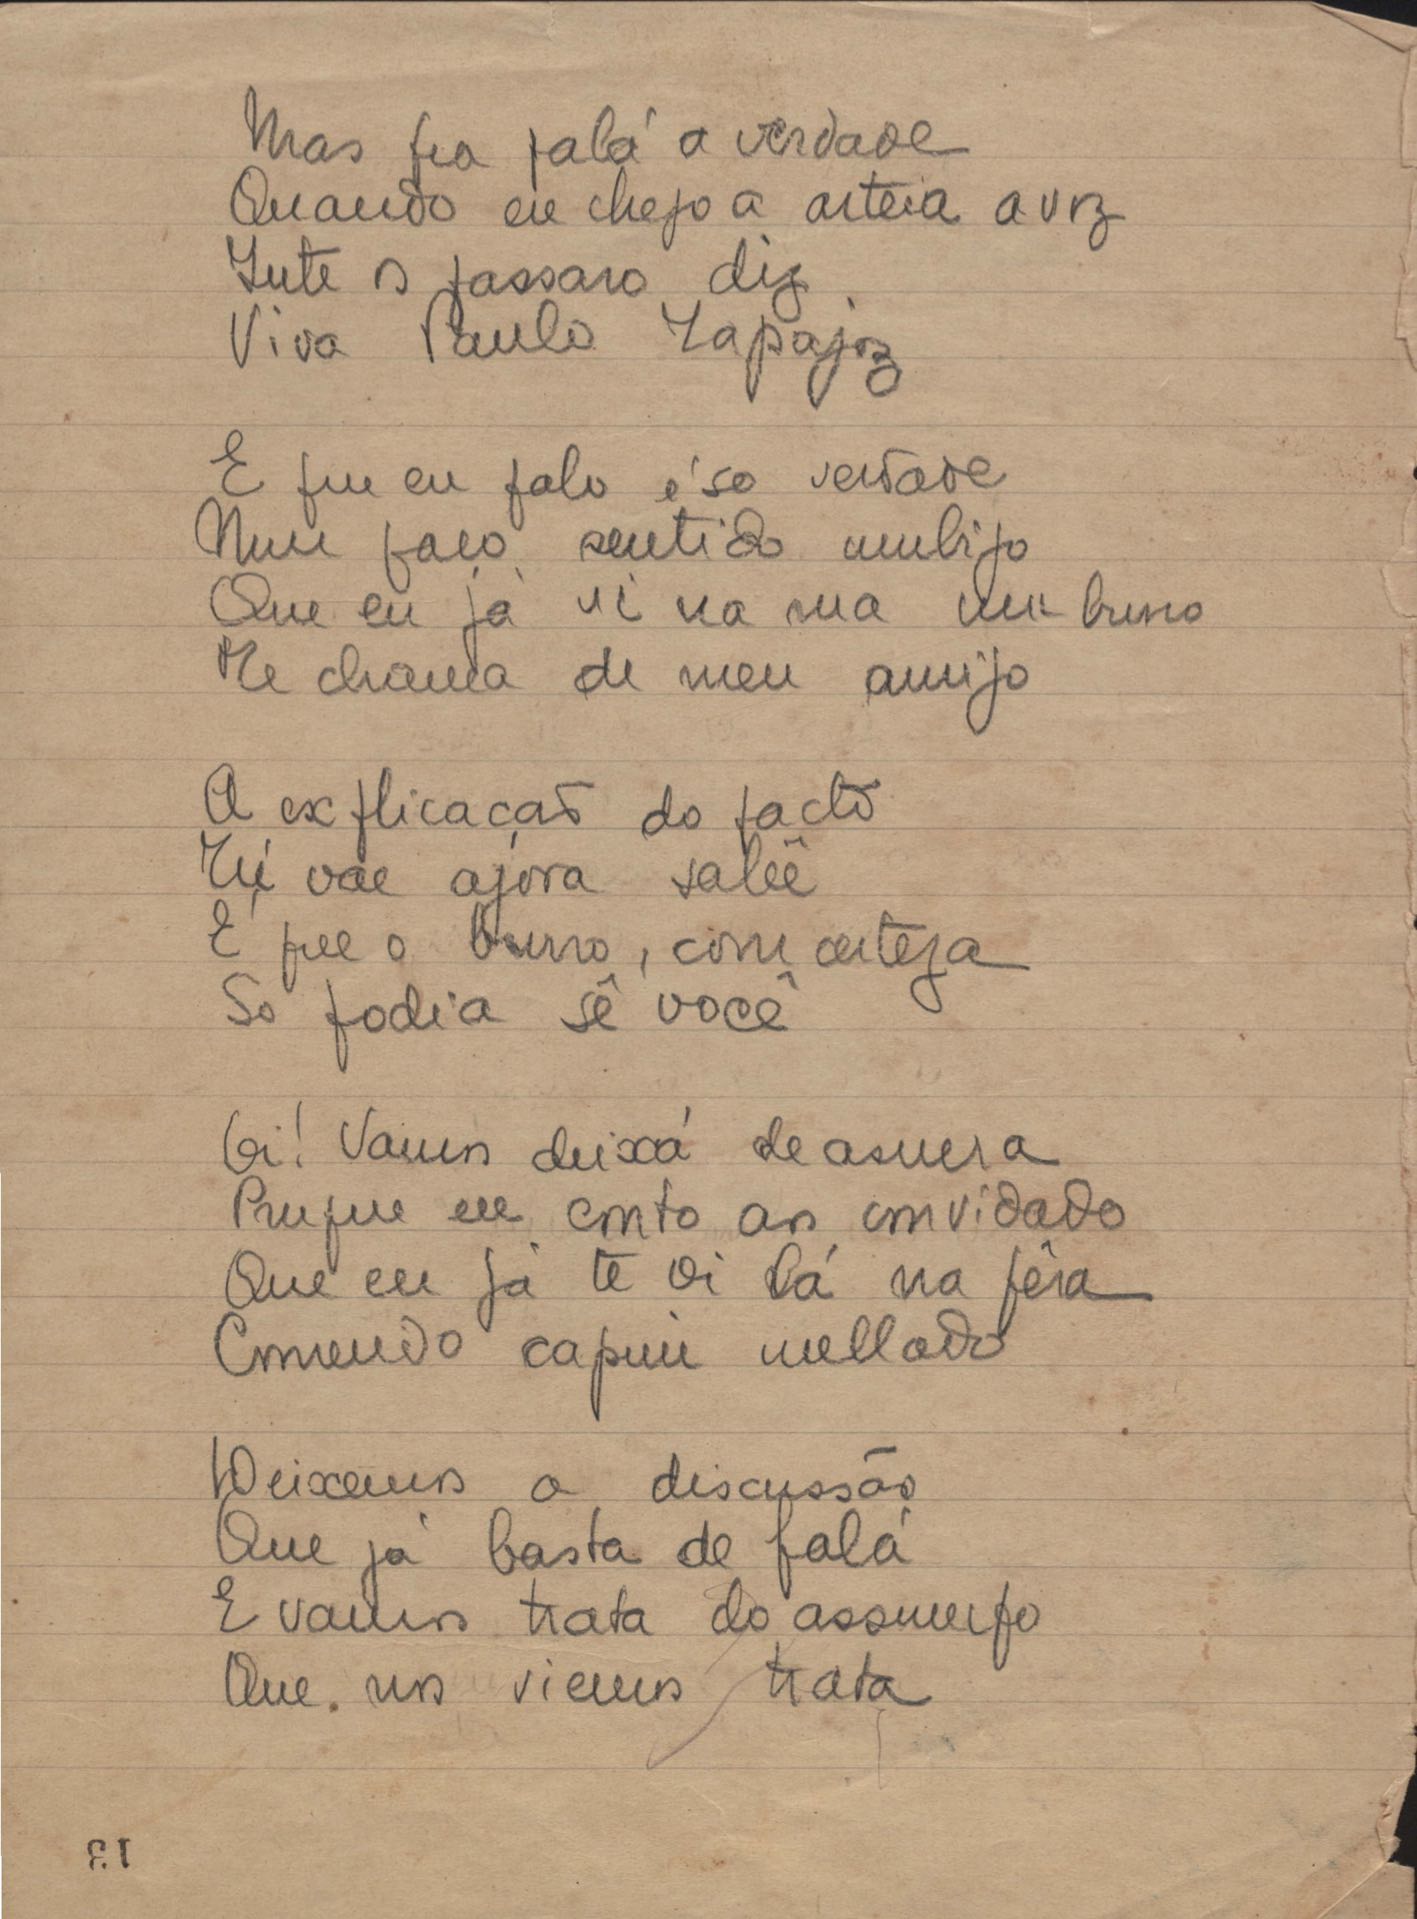 Mas pra falá a verdade
Quando eu chego a arteia a voz
Inté os passaro diz
Viva Paulo Tapajoz
E que eu falo é só verdade
Num faço sentido umbigo
Que eu já vi na rua um burro
Te chama de meu amigo
A explicacaõ do facto
Tú vae agora sabê
É que o burro, com certeza
Só podia sê você
Oi! Vamos deixá de asnera
Pruque eu conto aos convidado
Que eu já te vi lá na fêra
Comendo capim mellado
Deixemos a discussão
Que já basta de falá
E vamos trata do assumpto
Que nos viemos trata
13